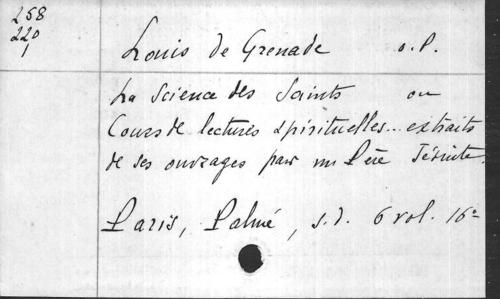 268
220
1
Louis de Grenade o.p.
La Science des Saints ou
Cours de lectures spirituelles... extraits
de ses ouvrages par un Père Jésuite.
Paris, Palmé, s.d. 6 vol. 16°